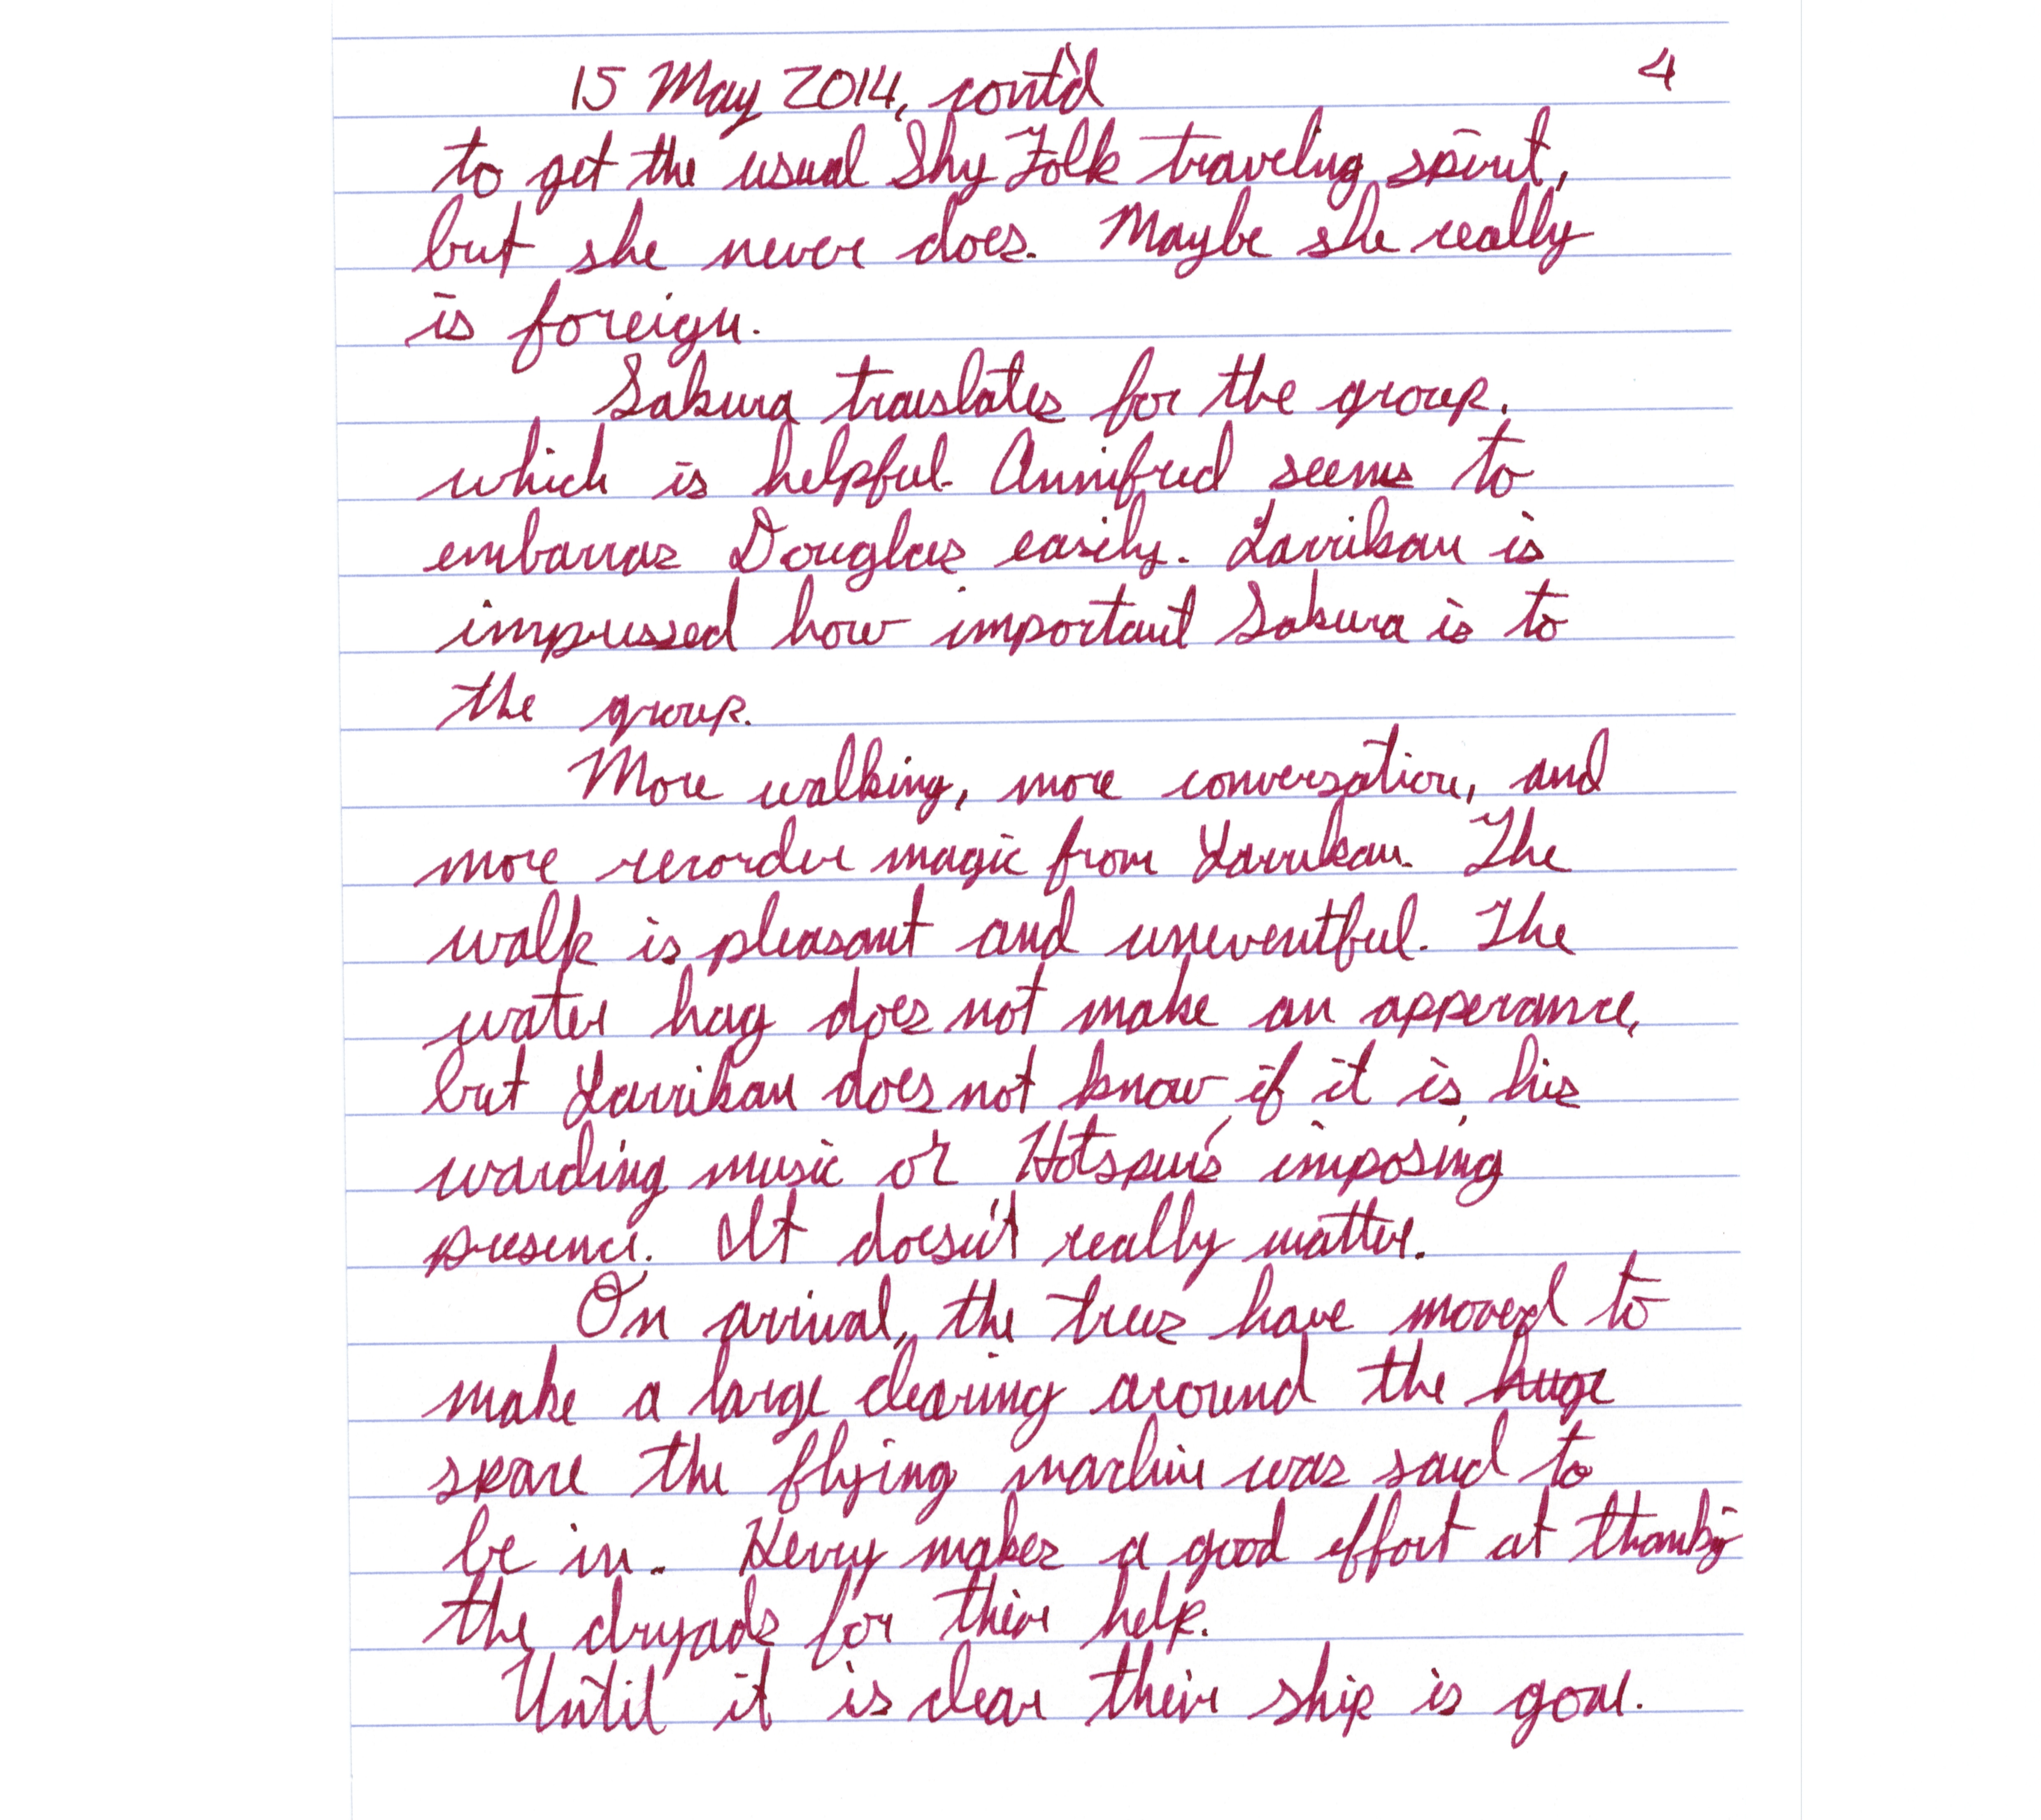 15 May 2014, cont'd 4
to get the usual Shy Folk traveling spirit,
but she never does. Maybe she really
is foreign.
Sakura translates for the group,
which is helpful. Annifred seems to
embarras Douglas easily. Larrikan is
impressed how important Sakura is to
the group.
More walking, more conversation, and
more recorder magic from Larrikan. The
walk is pleasant and uneventful. The
water hag does not make an apperance,
but Larrikan does not know if it is his
warding music or Hotspur's imposing
presence. It doesn't really matter.
On arrival, the trees have moved to
make a large clearing around the huge
space the flying machine was said to
be in. Kerry makes a good effort at thanking
the dryads for their help.
Until it is clear their ship is gone.